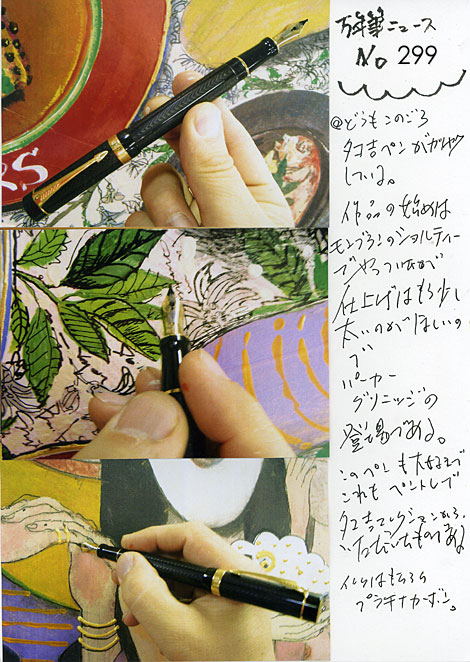 万年筆ニュース
No 299
@どうもこのごろ
タコ吉ペンが
している。
作品の始めは
モンブランのショルティー
でやっていたが
仕上げはもう少し
太いのがほしいの
で
パーカー
グリニッジの
登場である。
このペンも大好きで
これもペントレで
タコ吉コレクションから
いただいたものである
インクはもちろん
プラチナカーボン。
R.S